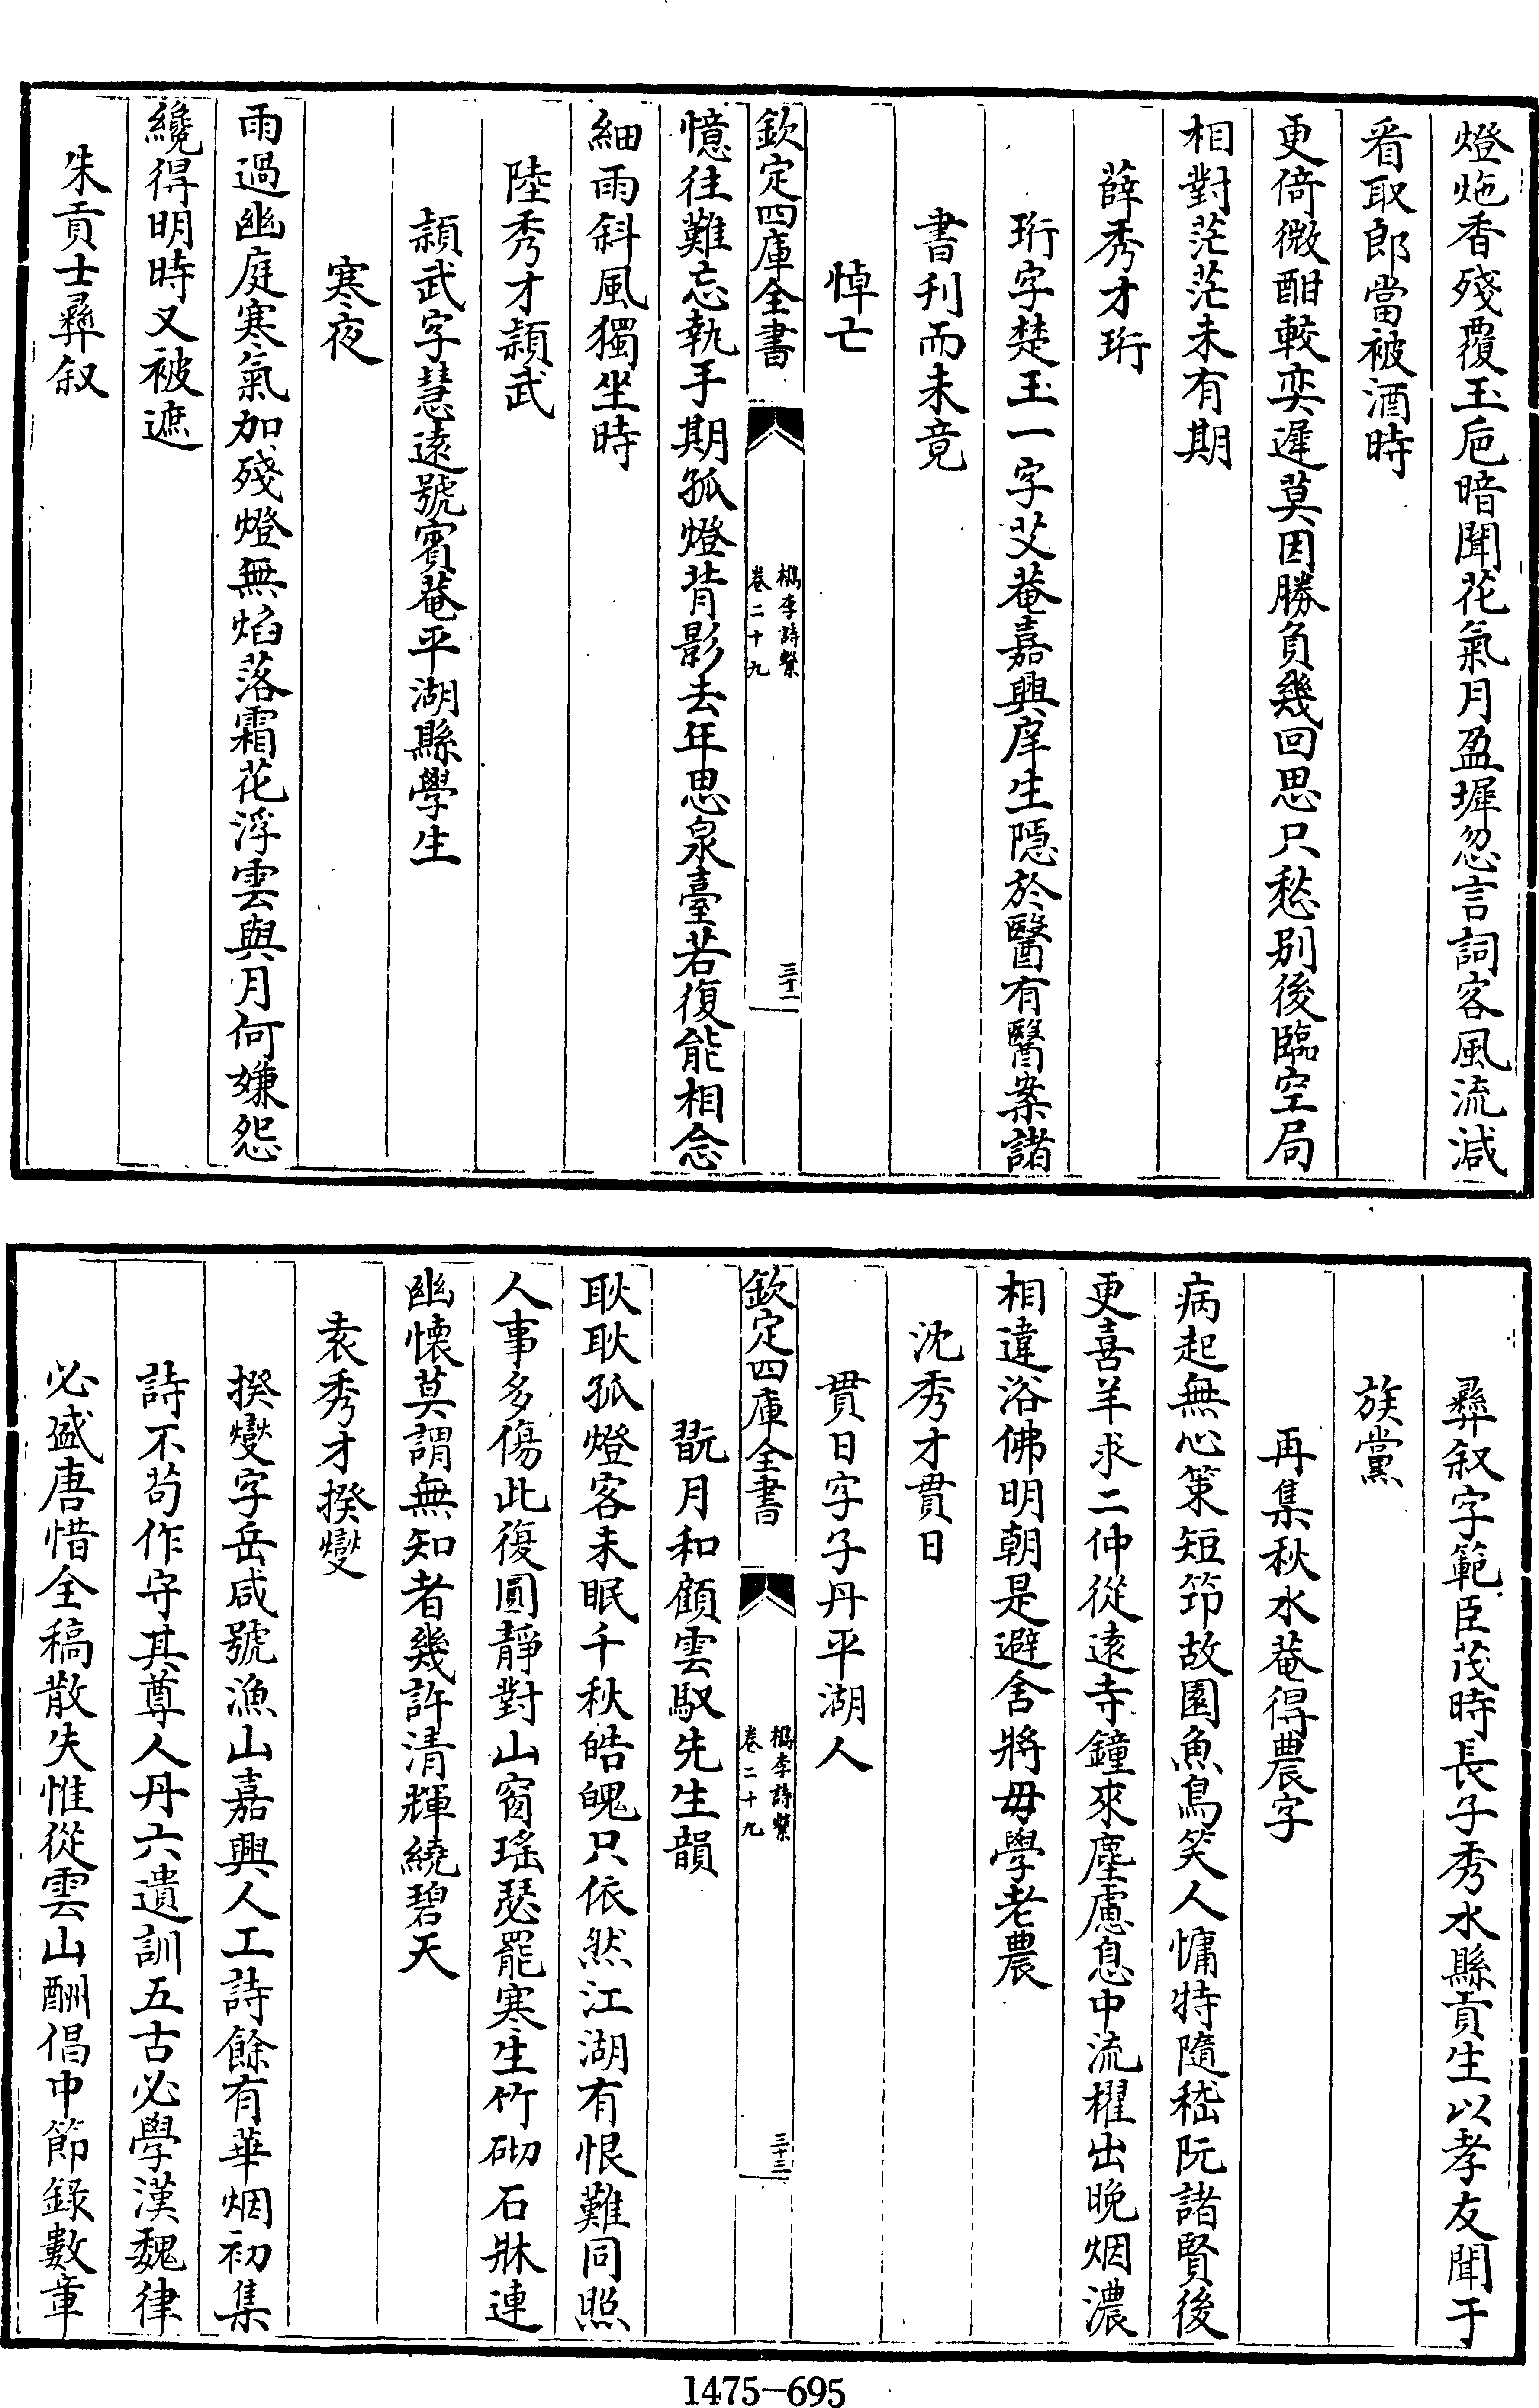 燈灺香殘覆玉巵暗聞花氣月盈墀忽言詞客風流減
看取郎當被酒時
更倚微酣較奕遲莫因勝負幾回思只愁別後臨空局
相對茫茫未有期
薛秀才珩
珩字楚玉一字艾菴嘉興庠生隠於醫有醫案諸
書刊而未竟
悼亡
欽定四庫全書
檇李詩繫
卷二十九
三十二
憶往難忘執手期孤燈背影去年思泉臺若復能相念
細雨斜風獨坐時
陸秀才頴武
頴武字慧遠號賓菴平湖縣學生
寒夜
雨過幽庭寒氣加殘燈無焰落霜花浮雲與月何嫌怨
纔得明時又被遮
朱貢士彛叙
彛叙字範臣茂時長子秀水縣貢生以孝友聞于
族黨
再集秋水菴得農字
病起無心策短笻故園魚鳥笑人慵特隨嵇阮諸賢後
更喜羊求二仲從逺寺鐘來塵慮息中流櫂出晚烟濃
相違浴佛明朝是避舍將毋學老農
沈秀才貫日
貫日字子丹平湖人
欽定四庫全書
檇李詩繫
卷二十九
三十三
翫月和顧雲馭先生韻
耿耿孤燈客未眠千秋皓魄只依然江湖有恨難同照
人事多傷此復圓靜對山窗瑤瑟罷寒生竹砌石牀連
幽懷莫謂無知者幾許清輝繞碧天
袁秀才揆燮
揆燮字岳咸號漁山嘉興人工詩餘有華烟初集
詩不苟作守其尊人丹六遺訓五古必學漢魏律
必盛唐惜全稿散失惟從雲山酬倡中節錄數章
1475-695